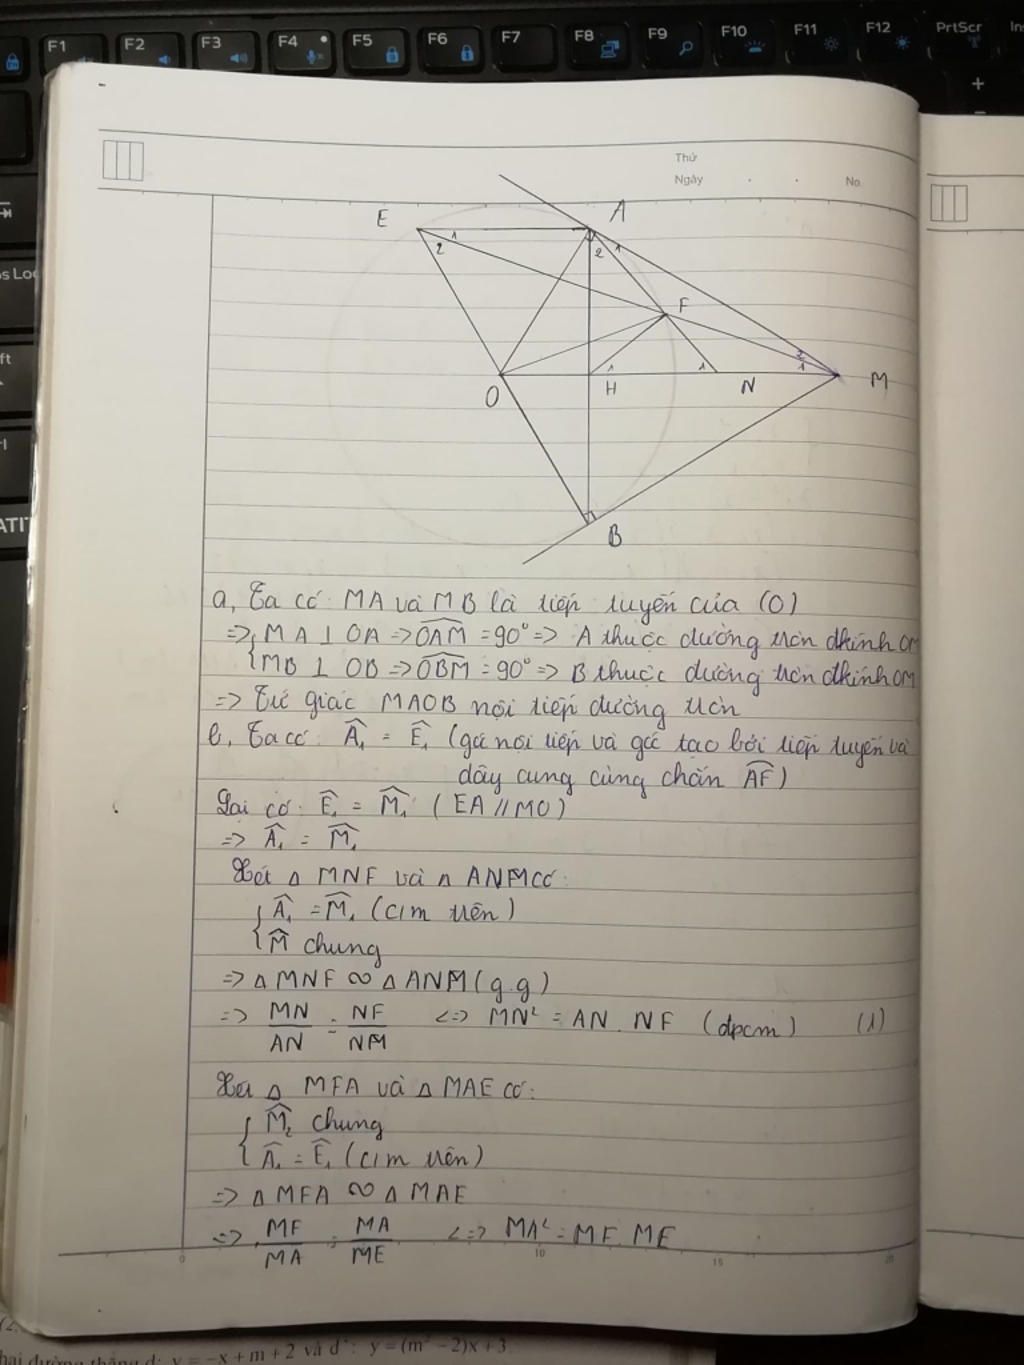 F1 F2 F3 F4 F5 F6 F7 F8 F9 F10 F11 F12 PrtScr
Thứ
Ngày . . No.
E A
1
2 2 1
F
2
1 1 1
O H N M
B
a, Ta có: MA và MB là tiếp tuyến của (O)
=> { MA ⊥ OA => \widehat{OAM} = 90° => A thuộc đường tròn đkính OM
{ MB ⊥ OB => \widehat{OBM} = 90° => B thuộc đường tròn đkính OM
=> Tứ giác MAOB nội tiếp đường tròn
b, Ta có: Â₁ = Ê₁ (góc nội tiếp và góc tạo bởi tiếp tuyến và
dây cung cùng chắn \widehat{AF})
Lại có: Ê₁ = \widehat{M}₁ (EA // MO)
=> Â₁ = \widehat{M}₁
Xét △ MNF và △ ANM có:
{ Â₁ = \widehat{M}₁ (c/m trên)
{ \widehat{M} chung
=> △ MNF ∽ △ ANM (g.g)
=> MN/AN = NF/NM <=> MN² = AN . NF (đpcm) (1)
Xét △ MFA và △ MAE có:
{ \widehat{M}₂ chung
{ Â₁ = Ê₁ (c/m trên)
=> △ MFA ∽ △ MAE
=> MF/MA = MA/ME <=> MA² = MF . ME
0 10 15 20
hai đường thẳng d: y = -x + m + 2 và d': y = (m² - 2)x + 3